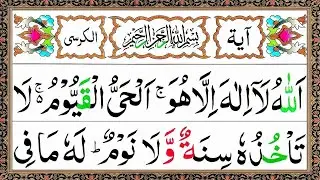 آية
بِسْمِ اللهِ الرَّحْمٰنِ الرَّحِيْمِ
الكرسى
اَللهُ لَاۤ اِلٰهَ اِلَّا هُوَۚ اَلْحَىُّ الْقَيُّوْمُ ۚ لَا
تَاْخُذُهٗ سِنَةٌ وَّ لَا نَوْمٌ ؕ لَهٗ مَا فِى